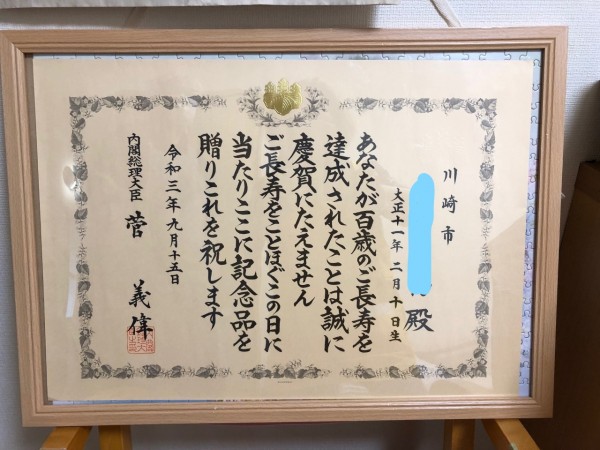 川崎市
殿
大正十一年二月十日生
あなたが百歳のご長寿を
達成されたことは誠に
慶賀にたえません
ご長寿をことほぐこの日に
当たりここに記念品を
贈りこれを祝します
令和三年九月十五日
内閣総理大臣 菅 義偉